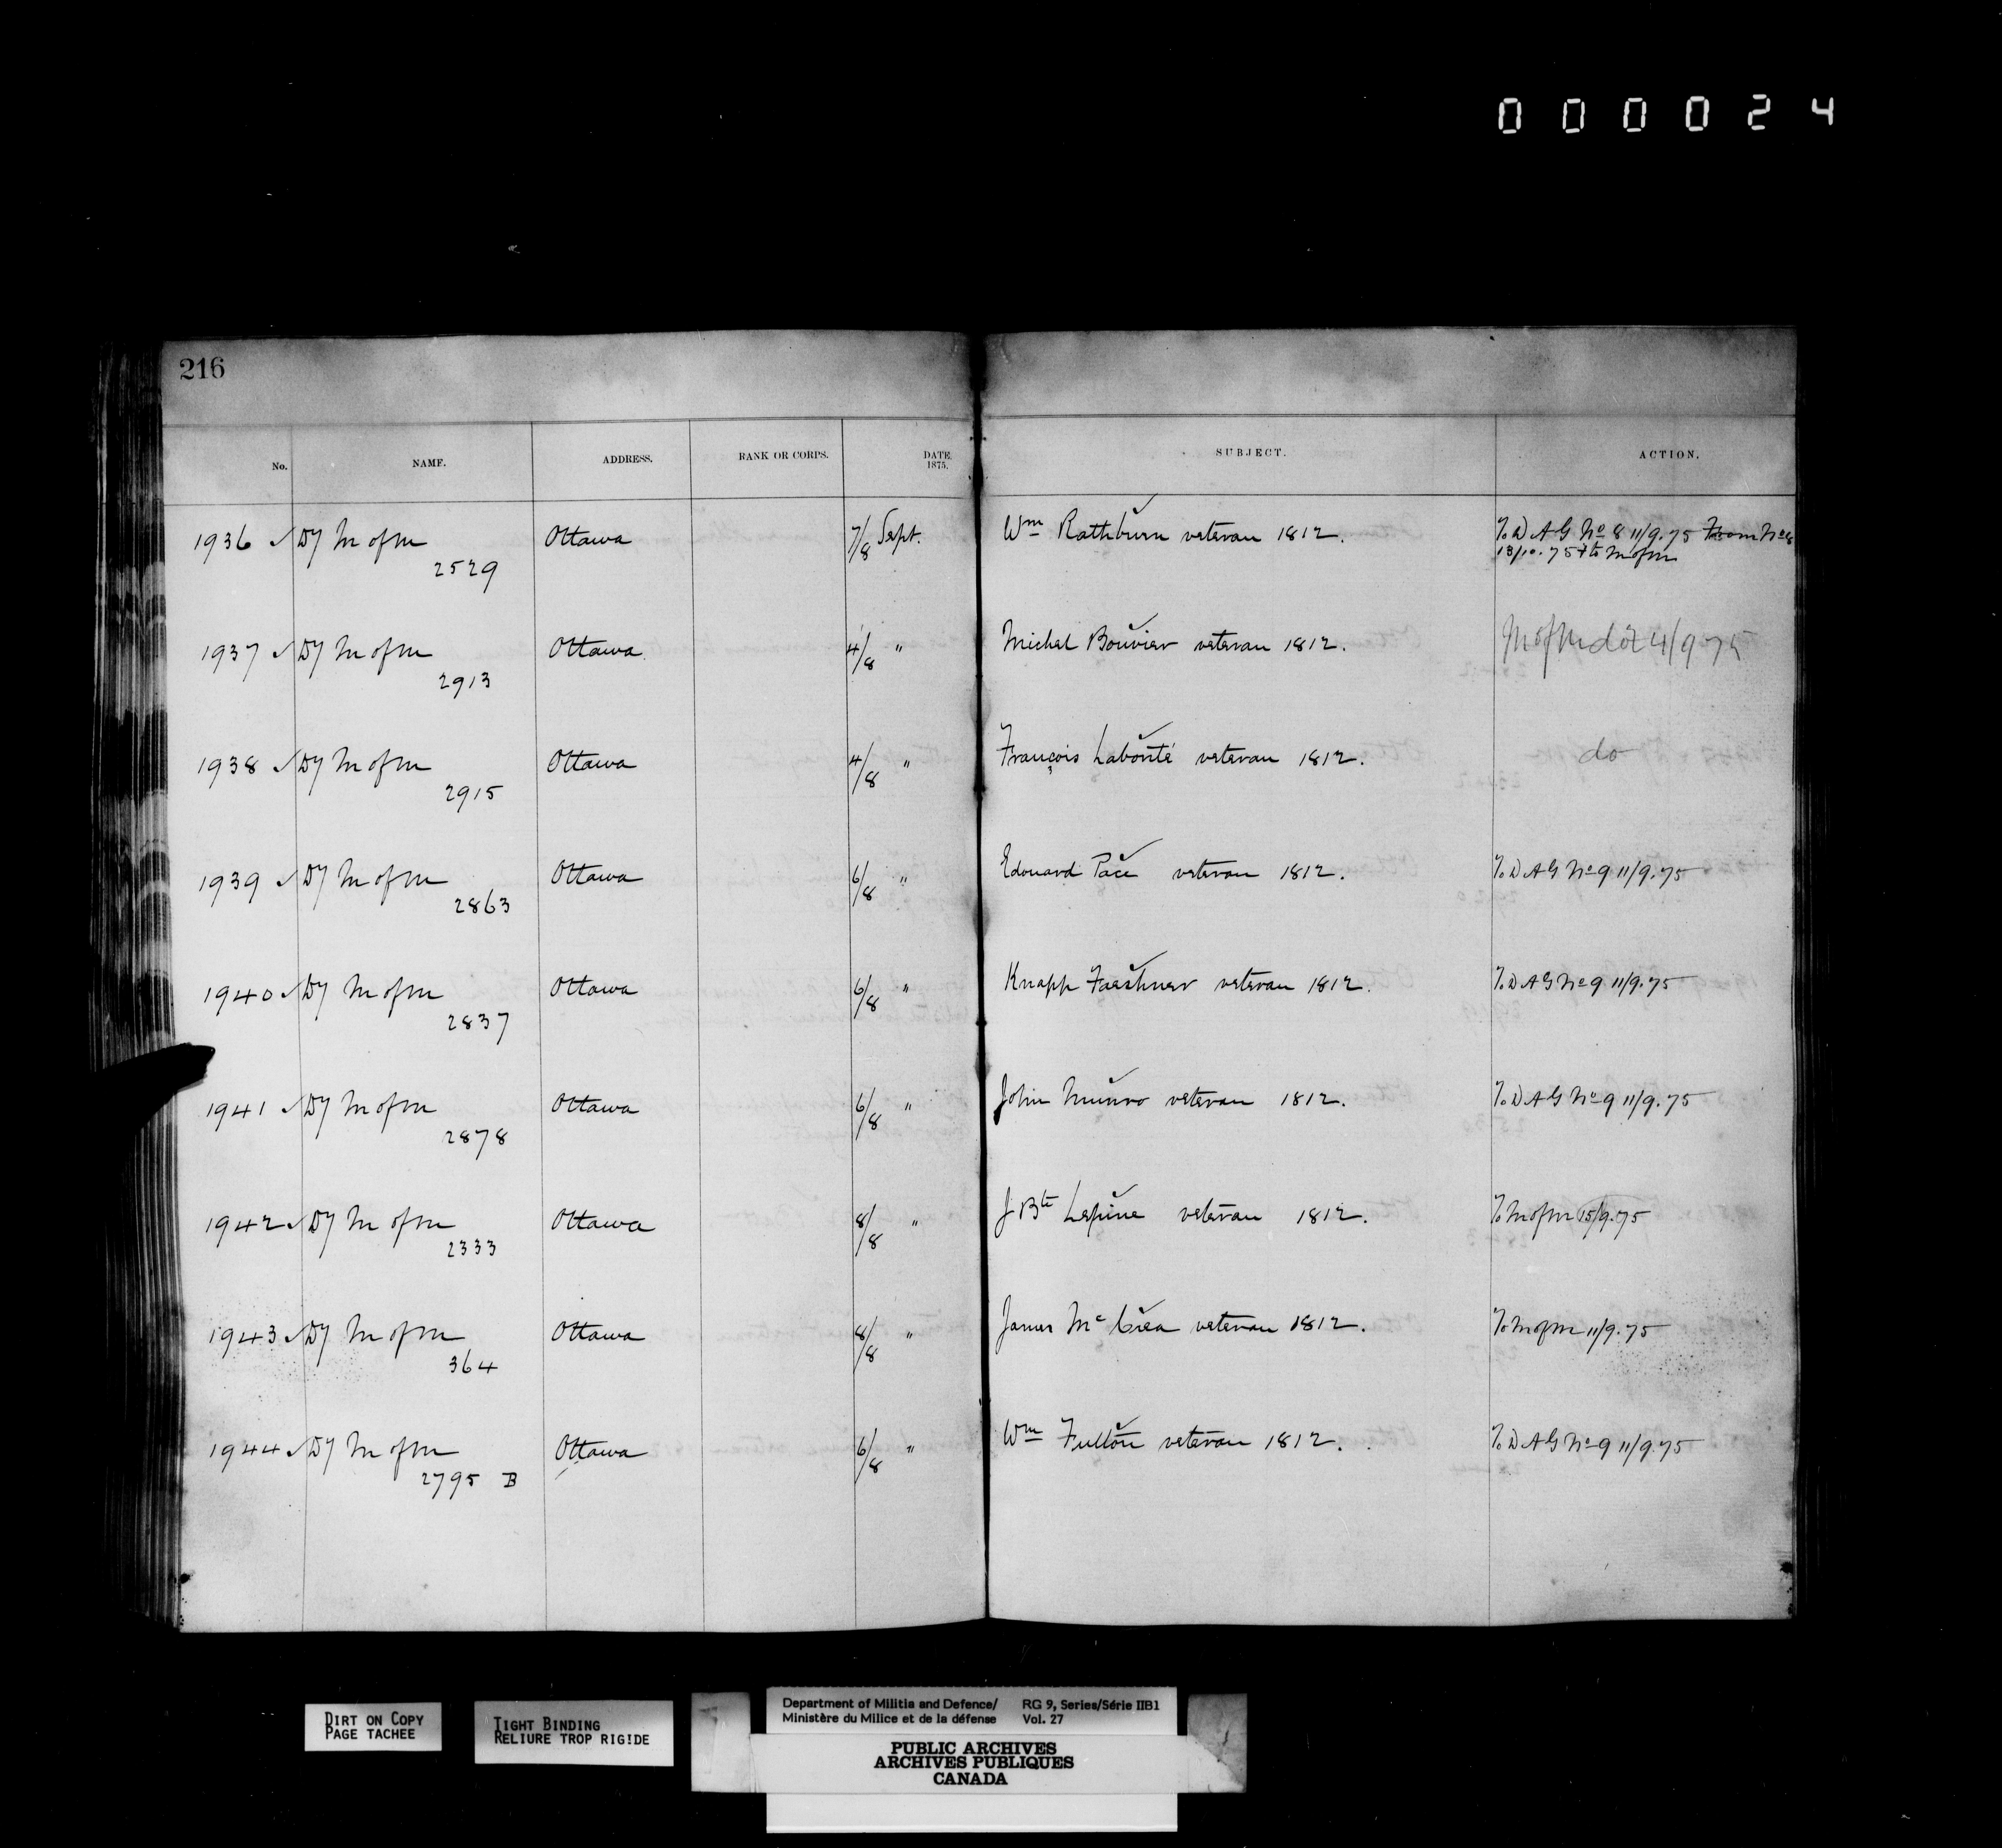 000024
216
No. NAME. ADDRESS. RANK OR CORPS. DATE. 1875. SUBJECT. ACTION.
1936 ✓ Dy M of M Ottawa 7/8 Sept. Wm Rathburn veteran 1812. To D A G No 8 11/9.75 From No 8
2529 13/10.75 to M of M
1937 ✓ Dy M of M Ottawa 4/8 " Michel Bouvier veteran 1812. M of M 4/9 75
2913
1938 ✓ Dy M of M Ottawa 4/8 " François Labonté veteran 1812. do
2915
1939 ✓ Dy M of M Ottawa 6/8 " Edouard Pacé veteran 1812. To D A G No 9 11/9.75
2863
1940 ✓ Dy M of M Ottawa 6/8 " Knapp veteran 1812. To D A G No 9 11/9.75
2837
1941 ✓ Dy M of M Ottawa 6/8 " John Munro veteran 1812. To D A G No 9 11/9.75
2878
1942 ✓ Dy M of M Ottawa 8/8 " J Bte Lepine veteran 1812. To M of M 15/9.75
2333
1943 ✓ Dy M of M Ottawa 8/8 " James McCrea veteran 1812. To M of M 11/9.75
364
1944 ✓ Dy M of M Ottawa 6/8 " Wm Fulton veteran 1812. To D A G No 9 11/9.75
2795 B
DIRT ON COPY
PAGE TACHEE
TIGHT BINDING
RELIURE TROP RIGIDE
Department of Militia and Defence/ RG 9, Series/Série IIB1
Ministère du Milice et de la défense Vol. 27
PUBLIC ARCHIVES
ARCHIVES PUBLIQUES
CANADA